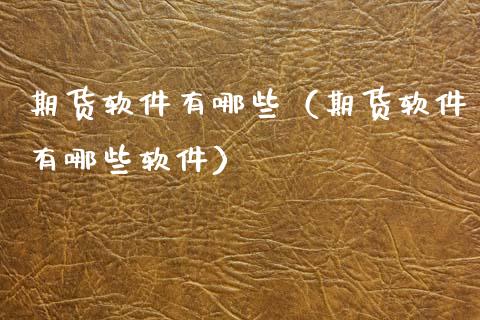 期货软件有哪些（期货软件
有哪些软件）